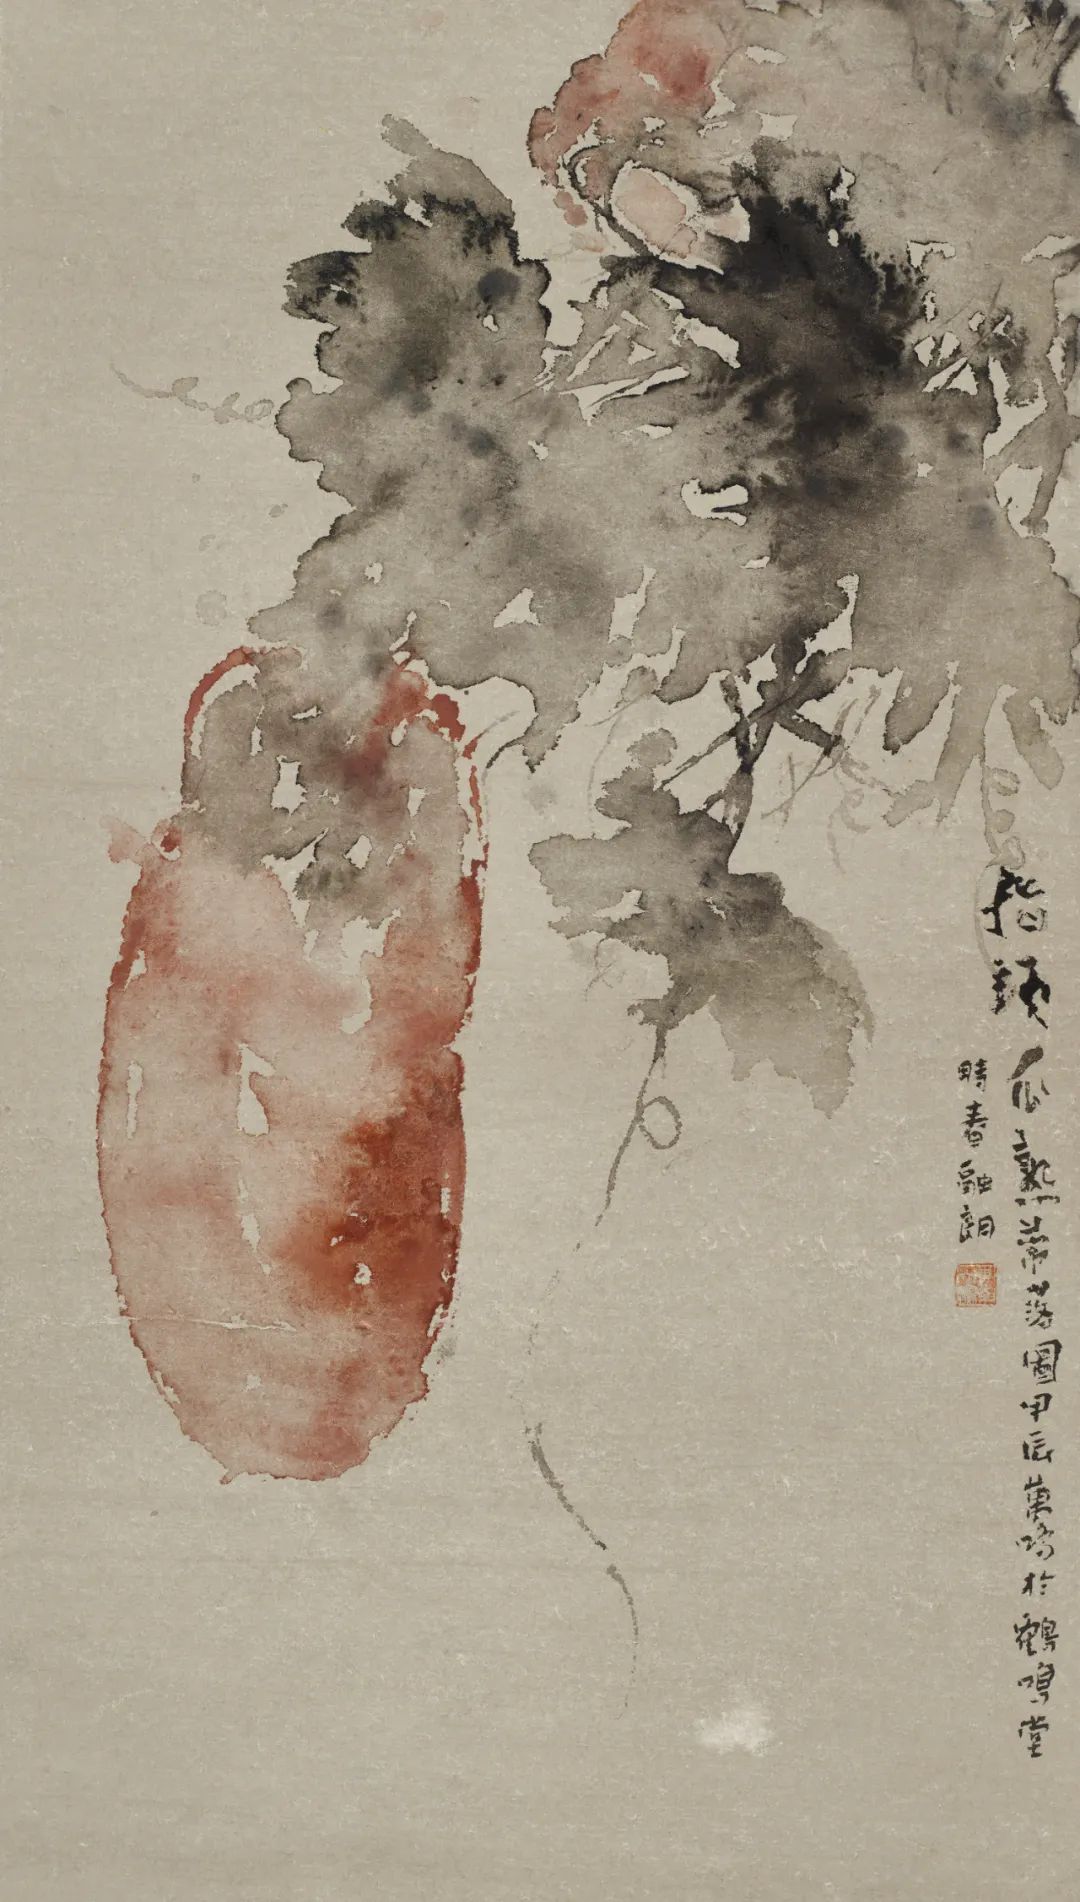 指頭瓜熟蒂落圖甲辰萬鳴於鶴鳴堂
時春融朗